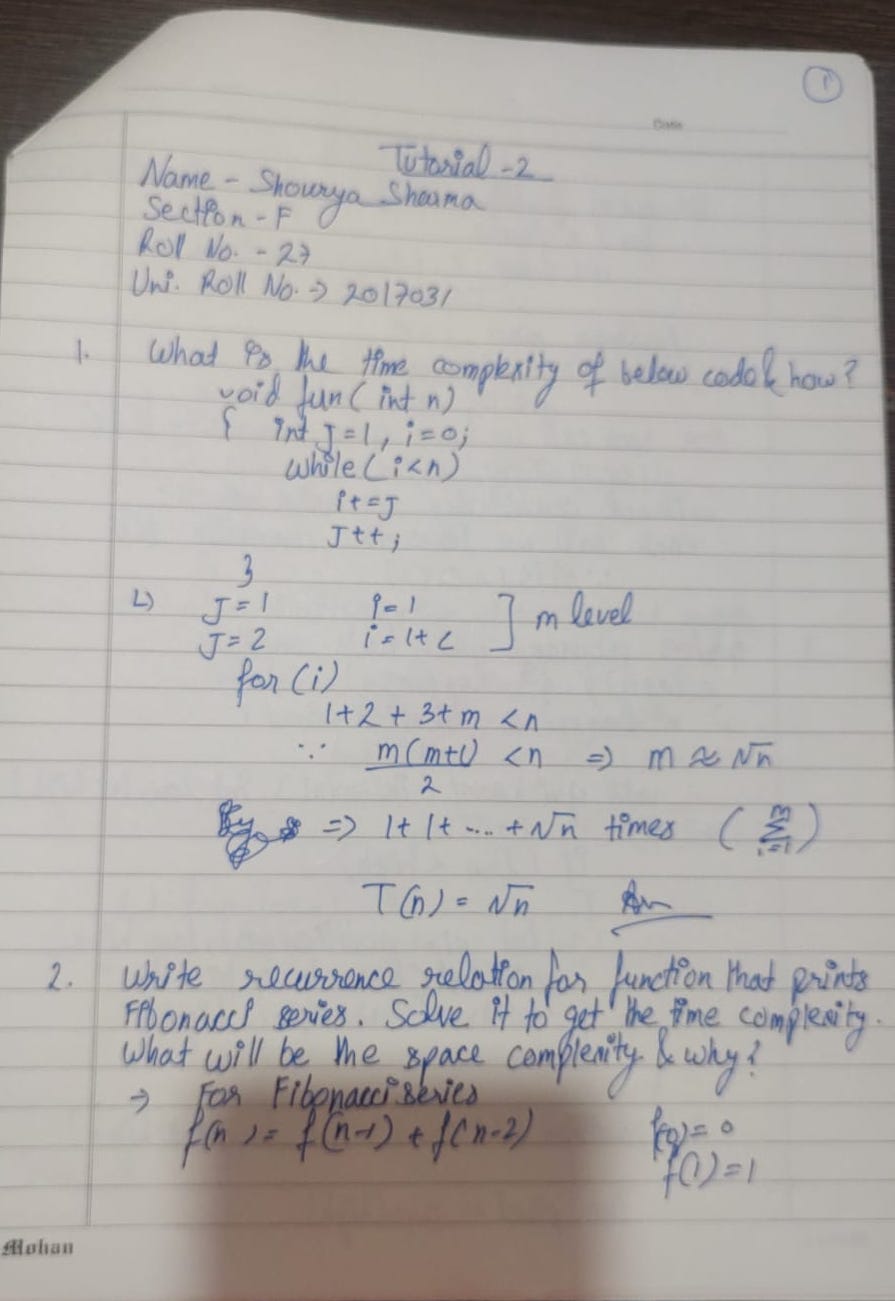 1
Date
Tutorial -2
Name - Shourya Sharma
Section - F
Roll No. - 27
Uni. Roll No. → 2017031
1. What is the time complexity of below code & how?
void fun( int n)
{ int J=1, i=0;
while( i<n)
i+=J
J++;
}
J=1 i=1 ] m level
J=2 i=1+2
for (i)
1+2+3+m <n
∵ m(m+1)/2 <n ⇒ m ≈ √n
⇒ 1+1+....+√n times ( m Σ i=1 )
T(n) = √n Ans
2. Write recurrence relation for function that prints
Fibonacci series. Solve it to get the time complexity.
What will be the space complexity & why?
→ For Fibonacci series
f(n) = f(n-1) + f(n-2) f(0)=0
f(1)=1
Mohan